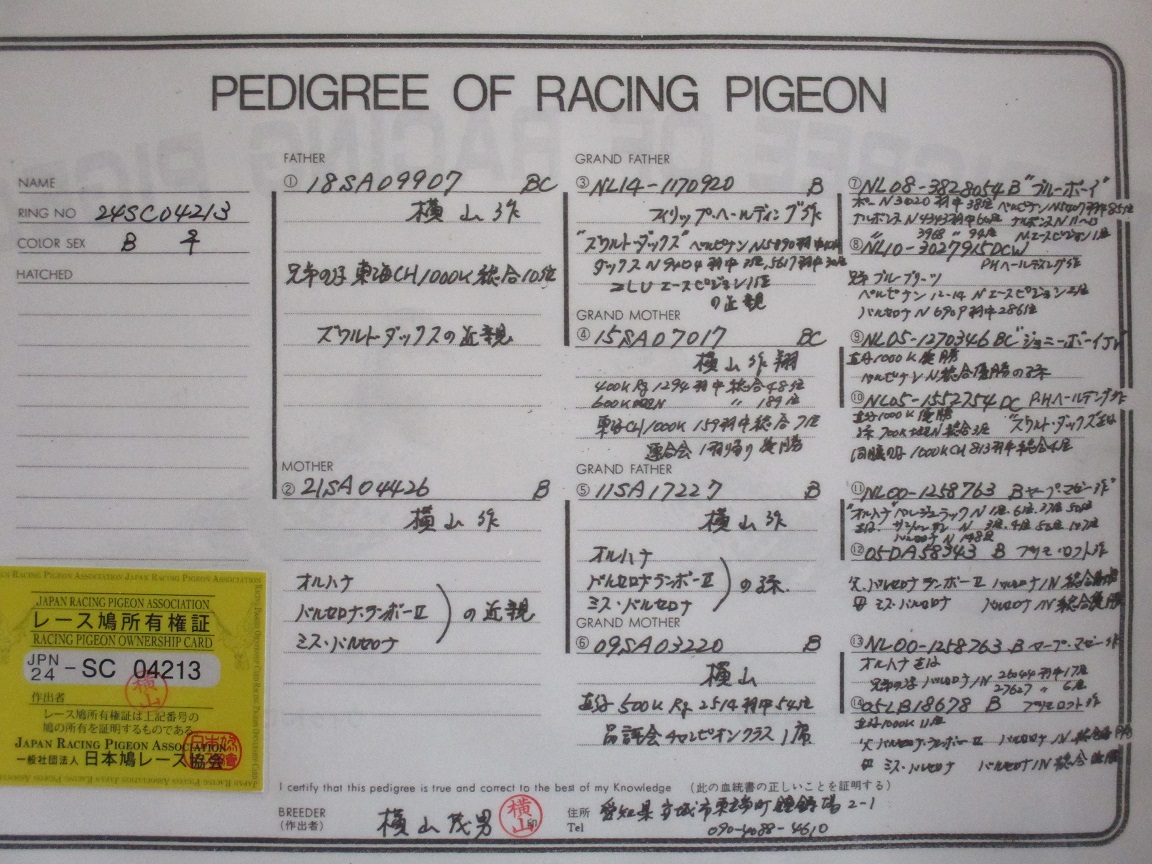 PEDIGREE OF RACING PIGEON
NAME
RING NO 24SC04213
COLOR SEX B ♀
HATCHED
FATHER
① 18SA09907 BC
横山作
兄弟の子 東海CH1000K総合10位
ズウルト・ダックスの近親
MOTHER
② 21SA04426 B
横山作
オルハナ
バルセロナ・ランボーⅡ
ミス・バルセロナ
の近親
GRAND FATHER
③ NL14-1170920 B
フィリップ・ヘールディング作
"ズウルト・ダックス" ペルピナン N5890羽中
ダックス N9404羽中
エースピジョン1位
の近親
GRAND MOTHER
④ 15SA07017 BC
横山作翔
400K Rg 1294羽中総合48位
600K 〃 189位
東海CH1000K 159羽中総合7位
連合会1羽帰り優勝
GRAND FATHER
⑤ 11SA17227 B
横山作
オルハナ
バルセロナランボーⅡ
ミス・バルセロナ
の孫
GRAND MOTHER
⑥ 09SA03220 B
横山
直仔 500K Rg 2514羽中54位
品評会チャンピオンクラス1席
⑦ NL08-3828054 B "ブルーボーイ"
ポー N3020羽中38位 ペルピナン N5407羽中85位
ナルボンヌ N4343羽中60位 ナルボンヌ
〃 3968 〃 94位 N.エースピジョン1位
⑧ NL10-3027915 DCW
P.Hヘールディング作
兄弟 ブルーブリーツ
ペルピナン 12-14 N エースピジョン2位
バルセロナ N6909羽中286位
⑨ NL05-1270346 BC "ジョニーボーイJr"
直仔1000K優勝
ペルピナンN総合優勝の孫
⑩ NL05-1552754 DC P.Hヘールディング作
直仔1000K優勝 "ズウルト・ダックス"
孫 700K N総合3位
同腹の仔 1000KCH 813羽中総合
⑪ NL00-1258763 B ヤープ・マゼー作
"オルハナ" ベルジュラック N 1位.6位.27位.50位
N 3位.4位.52位.147位
バルセロナ N 148位
⑫ 05-DA58343 B プリモロフト作
父 バルセロナランボーⅡ バルセロナIN総合優勝
母 ミス・バルセロナ バルセロナIN総合優勝
⑬ NL00-1258763 B ヤープ・マゼー作
オルハナ
兄弟の仔 バルセロナIN 26044羽中17位
27627 〃 6位
⑭ 05LB18678 B プリモロフト作
直仔1000K 11位
父 バルセロナ・ランボーⅡ バルセロナIN総合優勝
母 ミス・バルセロナ バルセロナIN総合優勝
JAPAN RACING PIGEON ASSOCIATION
レース鳩所有権証
RACING PIGEON OWNERSHIP CARD
JPN 24 - SC 04213
横山
作出者
レース鳩所有権証は上記番号の
鳩の所有を証明するものである
JAPAN RACING PIGEON ASSOCIATION
一般社団法人 日本鳩レース協会
I certify that this pedigree is true and correct to the best of my Knowledge (此の血統書の正しいことを証明する)
BREEDER
(作出者) 横山茂男 横山印
住所 愛知県安城市東端町鐘鋳場2-1
Tel 090-4088-4610